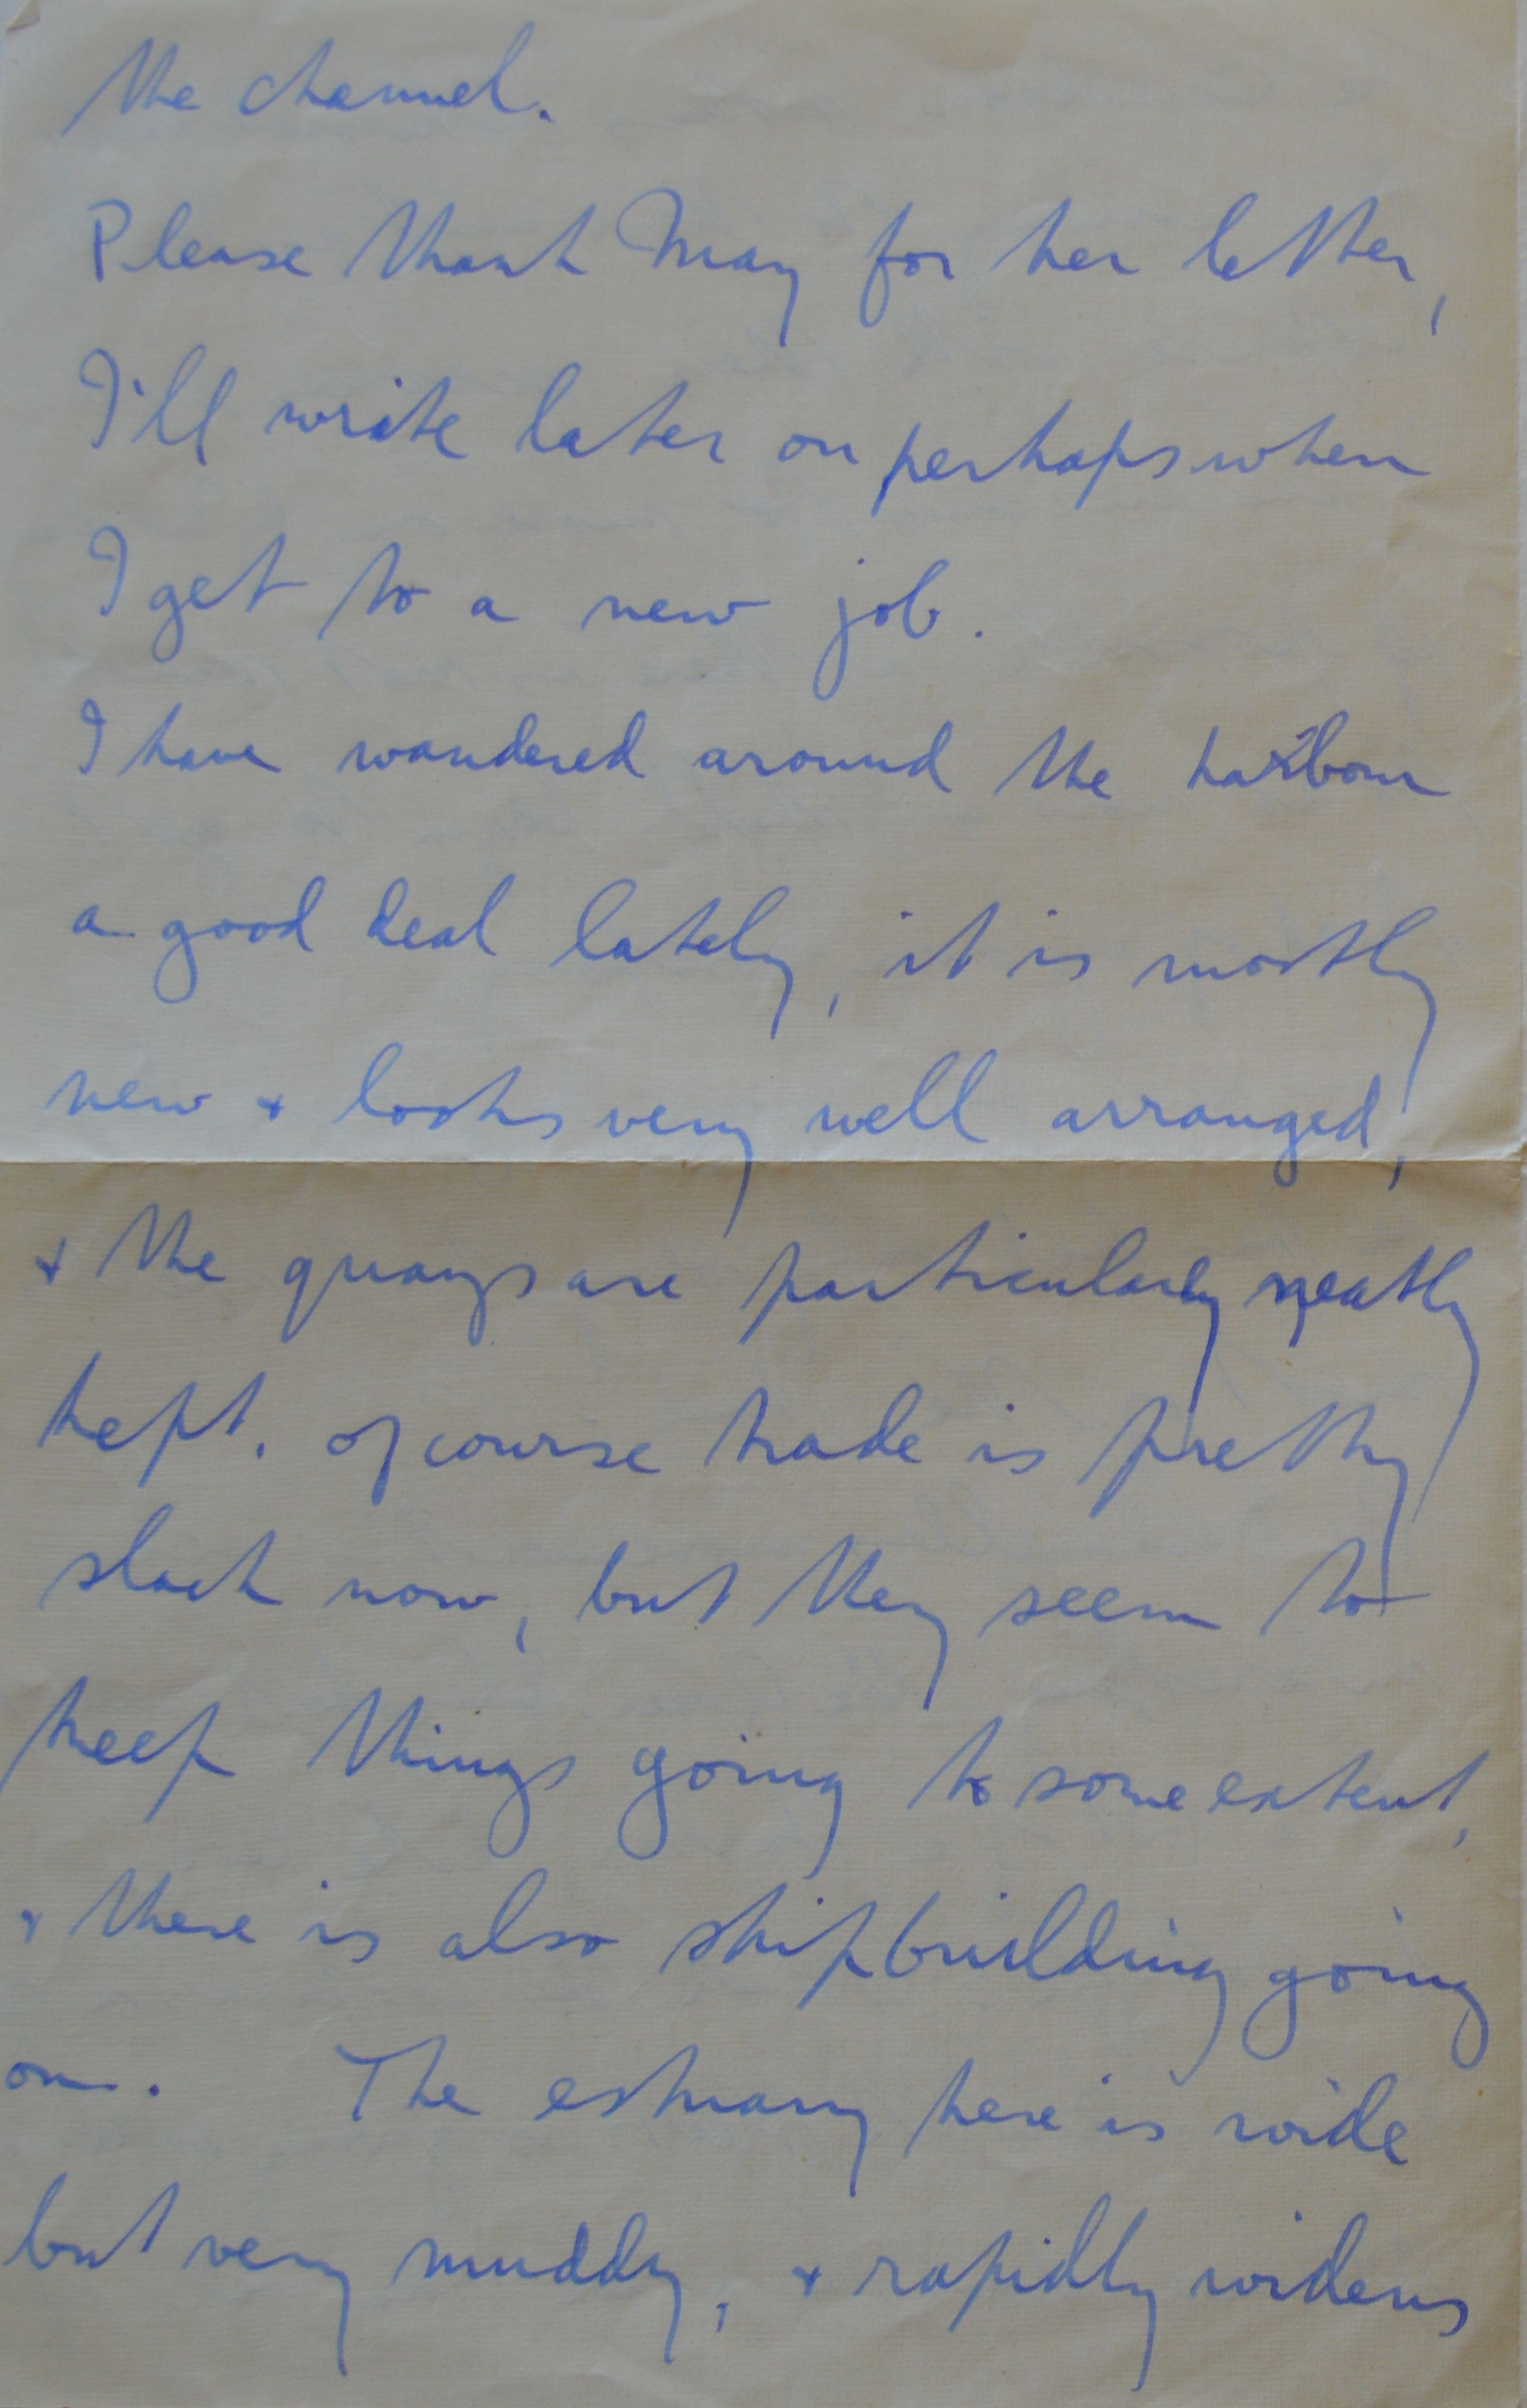 the channel.
Please thank May for her letter,
I'll write later on perhaps when
I get to a new job.
I have wandered around the harbour
a good deal lately, it is mostly
new + looks very well arranged,
+ the quays are particularly neatly
kept. of course trade is pretty
slack now, but they seem to
keep things going to some extent,
+ there is also shipbuilding going
on. The estuary here is wide
but very muddy, + rapidly widens